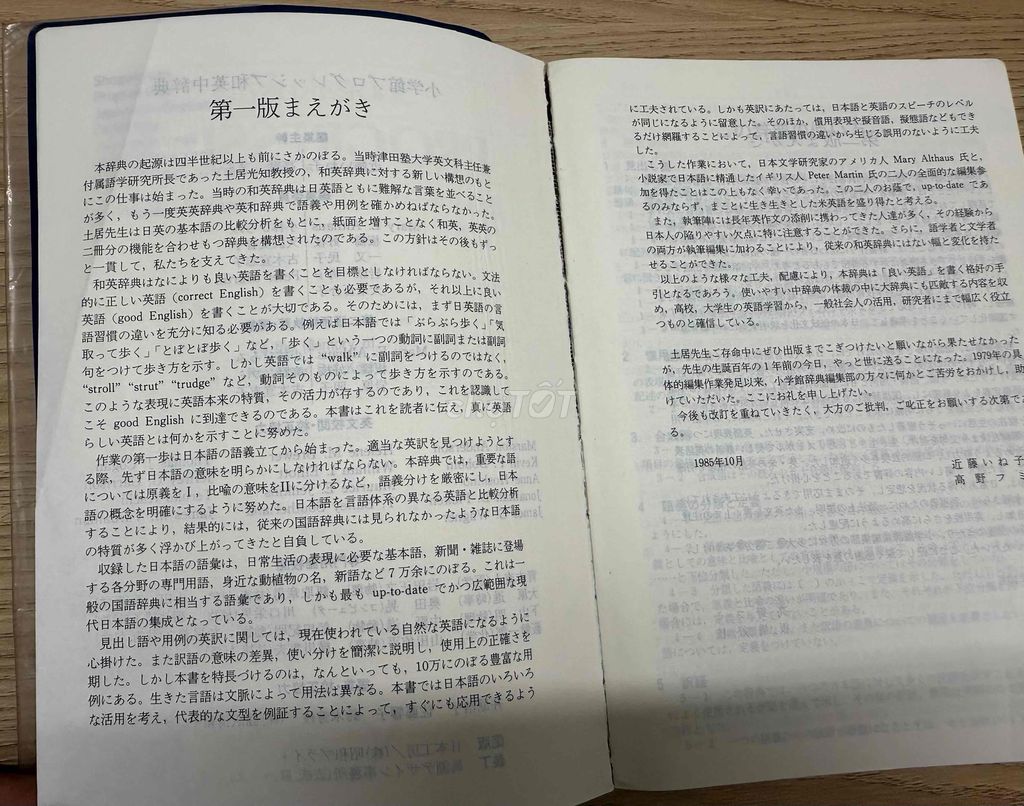 第一版まえがき
本辞典の起源は四半世紀以上も前にさかのぼる。当時津田塾大学英文科主任兼
付属語学研究所長であった土居光知教授の，和英辞典に対する新しい構想のもと
にこの仕事は始まった。当時の和英辞典は日英語ともに難解な言葉を並べること
が多く，もう一度英英辞典や英和辞典で語義や用例を確かめねばならなかった。
土居先生は日英の基本語の比較分析をもとに，紙面を増すことなく和英，英英の
二冊分の機能を合わせもつ辞典を構想されたのである。この方針はその後もずっ
と一貫して，私たちを支えてきた。
和英辞典はなによりも良い英語を書くことを目標としなければならない。文法
的に正しい英語（correct English）を書くことも必要であるが，それ以上に良い
英語（good English）を書くことが大切である。そのためには，まず日英語の言
語習慣の違いを充分に知る必要がある。例えば日本語では「ぶらぶら歩く」「気
取って歩く」「とぼとぼ歩く」など，「歩く」という一つの動詞に副詞または副詞
句をつけて歩き方を示す。しかし英語では “walk” に副詞をつけるのではなく，
“stroll” “strut” “trudge” など，動詞そのものによって歩き方を示すのである。
このような表現に英語本来の特質，その活力が存するのであり，これを認識して
こそ good English に到達できるのである。本書はこれを読者に伝え，真に英語
らしい英語とは何かを示すことに努めた。
作業の第一歩は日本語の語義立てから始まった。適当な英訳を見つけようとす
る際，先ず日本語の意味を明らかにしなければならない。本辞典では，重要な語
については原義をⅠ，比喩の意味をⅡに分けるなど，語義分けを厳密にし，日本
語の概念を明確にするように努めた。日本語を言語体系の異なる英語と比較分析
することにより，結果的には，従来の国語辞典には見られなかったような日本語
の特質が多く浮かび上がってきたと自負している。
収録した日本語の語彙は，日常生活の表現に必要な基本語，新聞・雑誌に登場
する各分野の専門用語，身近な動植物の名，新語など７万余にのぼる。これは一
般の国語辞典に相当する語彙であり，しかも最も up-to-date でかつ広範囲な現
代日本語の集成となっている。
見出し語や用例の英訳に関しては，現在使われている自然な英語になるように
心掛けた。また訳語の意味の差異，使い分けを簡潔に説明し，使用上の正確さを
期した。しかし本書を特長づけるのは，なんといっても，10万にのぼる豊富な用
例にある。生きた言語は文脈によって用法は異なる。本書では日本語のいろいろ
な活用を考え，代表的な文型を例証することによって，すぐにも応用できるよう
に工夫されている。しかも英訳にあたっては，日本語と英語のスピーチのレベル
が同じになるように留意した。そのほか，慣用表現や擬音語，擬態語などもでき
るだけ網羅することによって，言語習慣の違いから生じる誤用のないように工夫
した。
こうした作業において，日本文学研究家のアメリカ人 Mary Althaus 氏と，
小説家で日本語に精通したイギリス人 Peter Martin 氏の二人の全面的な編集参
加を得たことはこの上もなく幸いであった。この二人のお蔭で，up-to-date であ
るのみならず，まことに生き生きとした米英語を盛り得たと考える。
また，執筆陣には長年英作文の添削に携わってきた人達が多く，その経験から
日本人の陥りやすい欠点に特に注意することができた。さらに，語学者と文学者
の両方が執筆編集に加わることにより，従来の和英辞典にはない幅と変化を持た
せることができた。
以上のような様々な工夫，配慮により，本辞典は「良い英語」を書く格好の手
引となるであろう。使いやすい中辞典の体裁の中に大辞典にも匹敵する内容を収
め，高校，大学生の英語学習から，一般社会人の活用，研究者にまで幅広く役立
つものと確信している。
土居先生ご存命中にぜひ出版までこぎつけたいと願いながら果たせなかった
が，先生の生誕百年の１年前の今日，やっと世に送ることになった。1979年の具
体的編集作業発足以来，小学館辞典編集部の方々に何かとご苦労をおかけし，助
けていただいた。ここにお礼を申し上げたい。
今後も改訂を重ねていきたく，大方のご批判，ご叱正をお願いする次第で
る。
1985年10月
近藤いね子
高野フミ